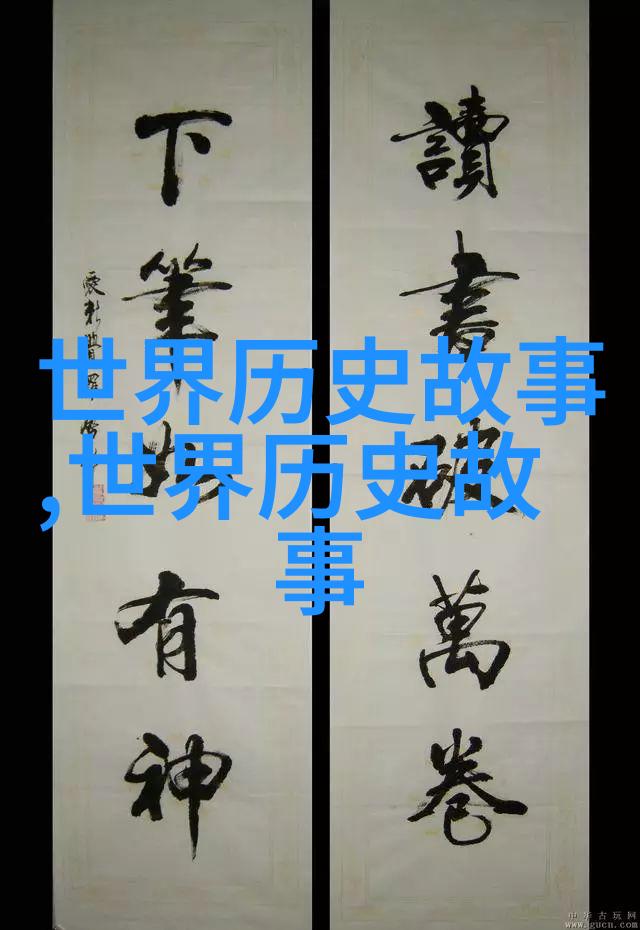 讀書破萬卷
下筆如有神
世界历史故事
,世界历史故
事
中华古玩网
www.gucn.com